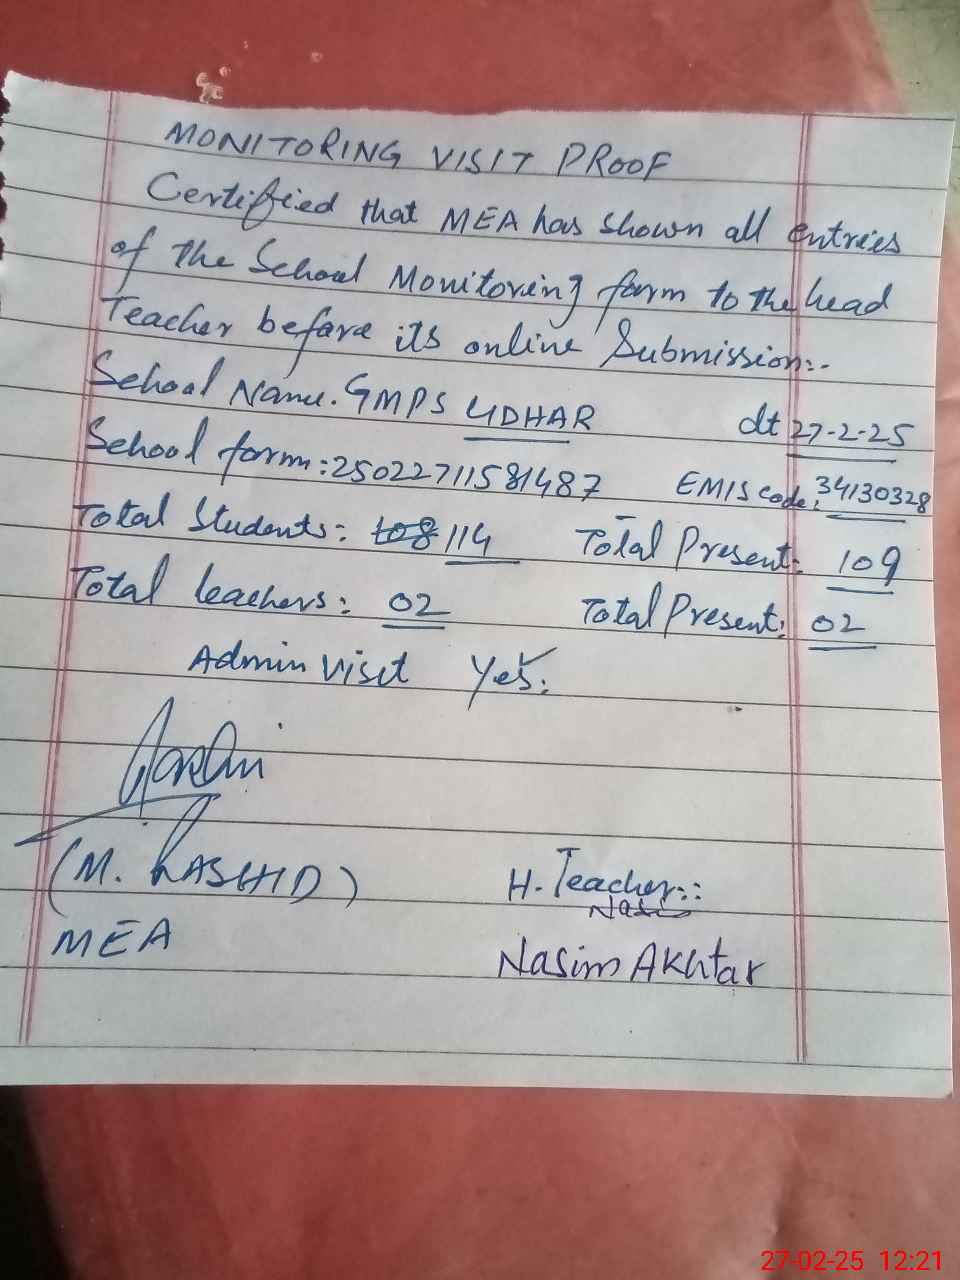 MONITORING VISIT PROOF
Certified that MEA has shown all entries
of the School Monitoring form to the head
Teacher before its online Submission:-
School Name. GMPS UDHAR dt 27-2-25
School form: 25022711581487 EMIS code: 34130328
Total Students: 108 114 Total Present: 109
Total teachers: 02 Total Present: 02
Admin visit Yes.
(M. RASHID)
H. Teacher::
MEA
Nasim Akhtar
27-02-25 12:21